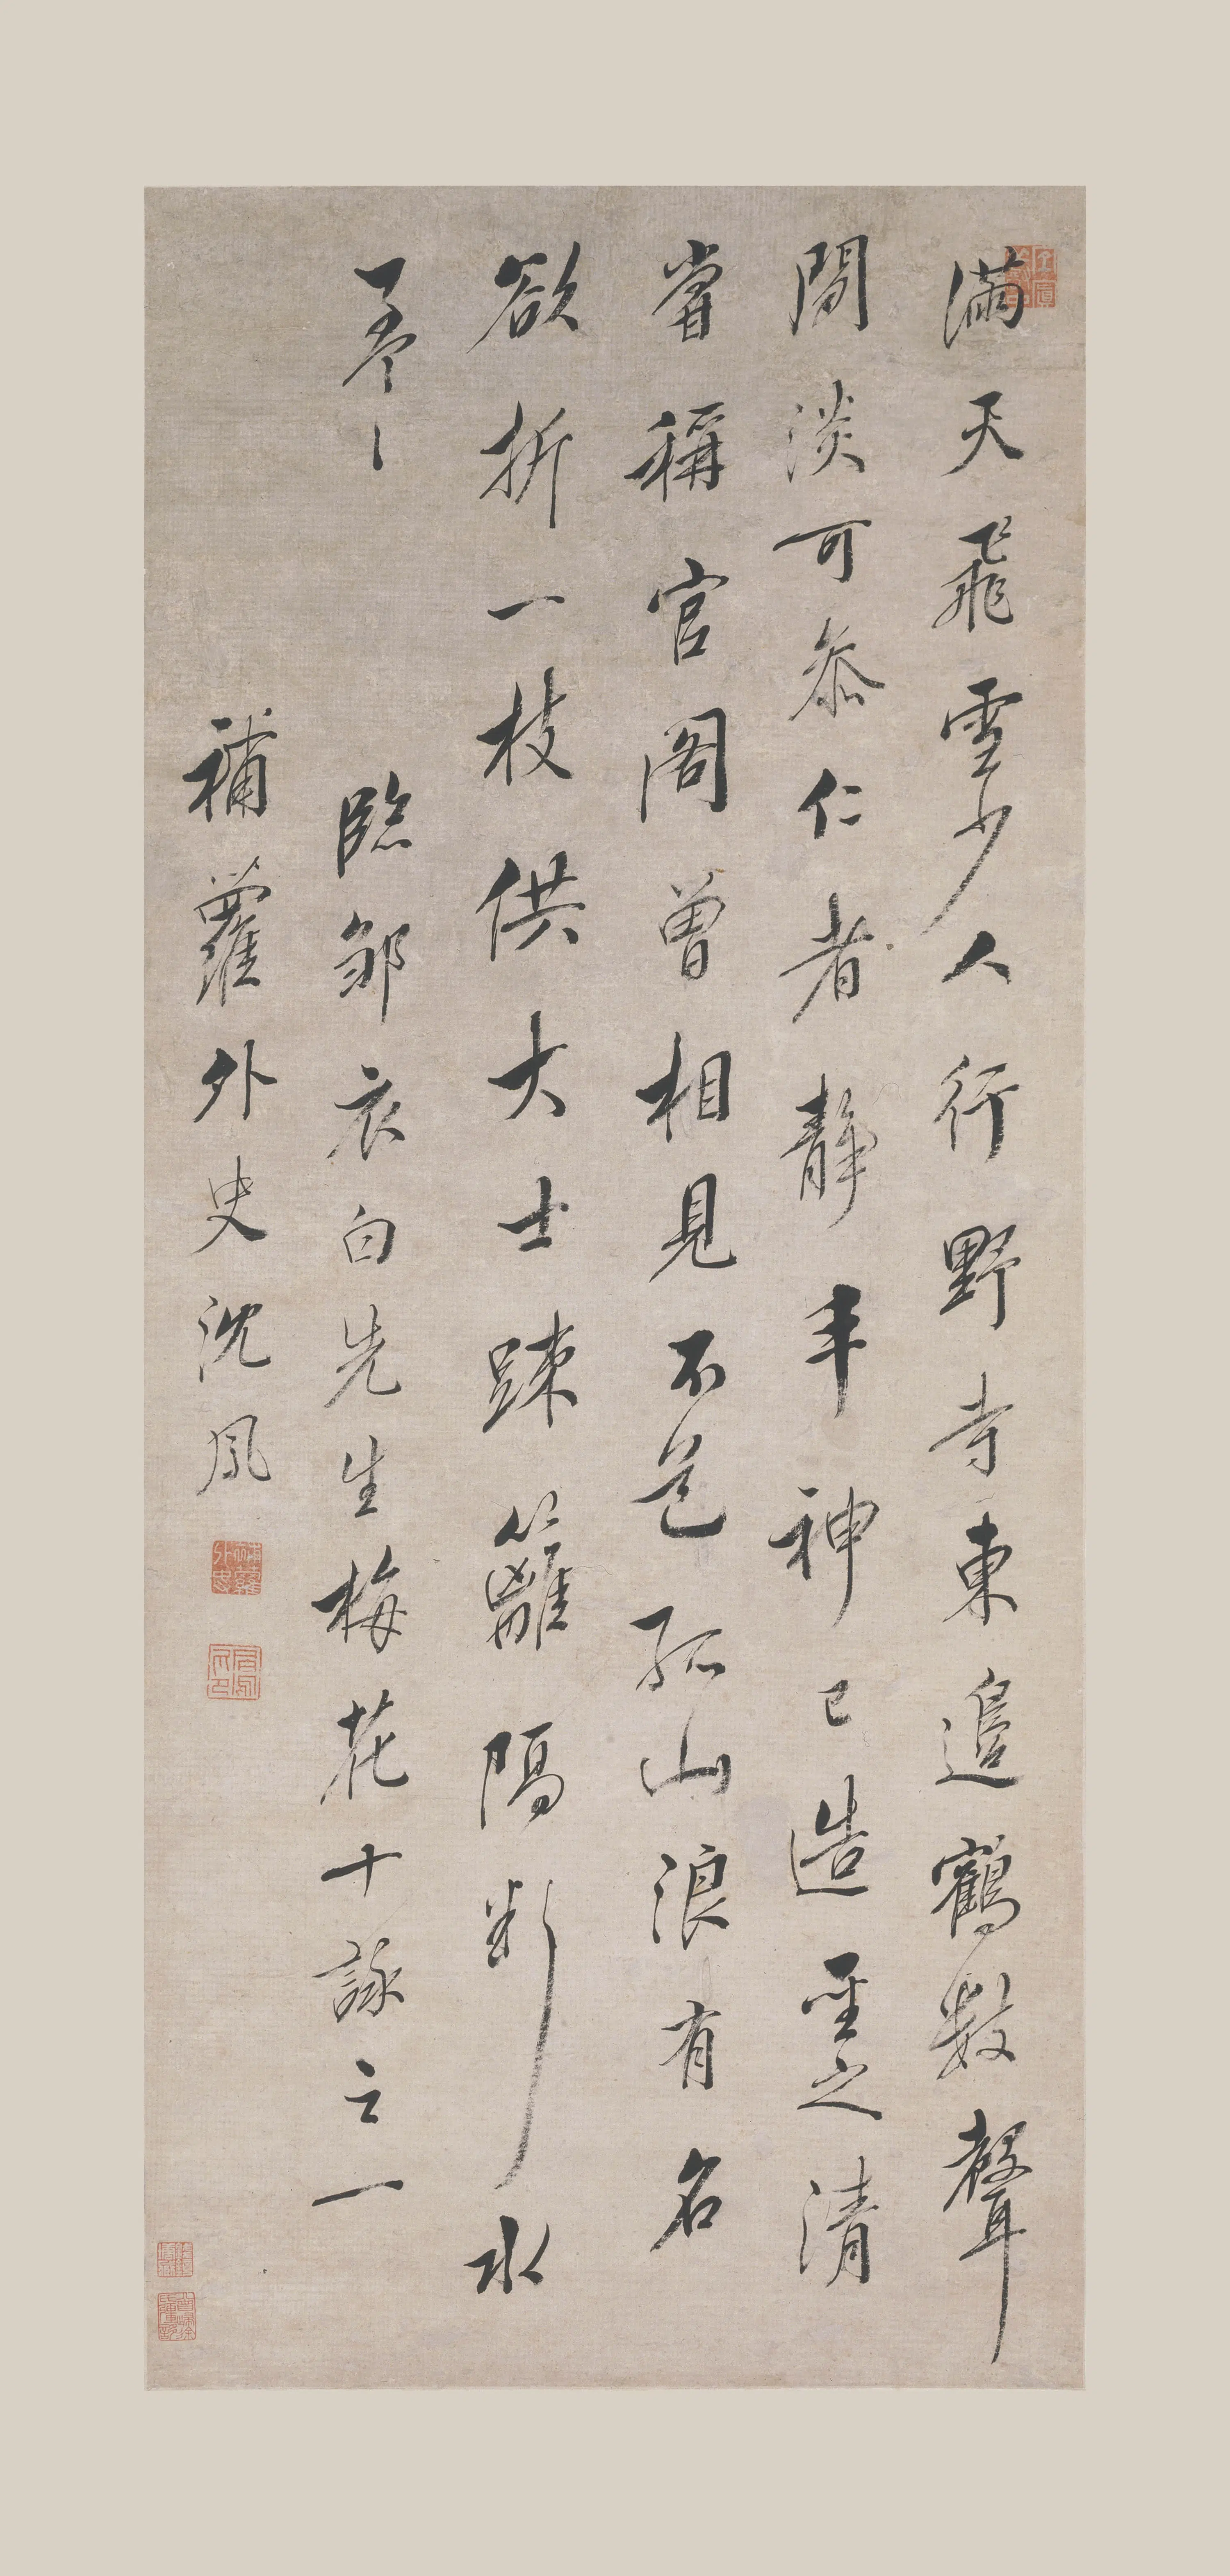 滿天飛雪少人行野寺東邊鶴數聲
閒淡可參仁者靜丰神已造聖之清
嘗稱官閣曾相見不是孤山浪有名
欲折一枝供大士踈籬隔斷水
臨鄒衣白先生梅花十詠之一
補蘿外史沈鳳
補蘿外史